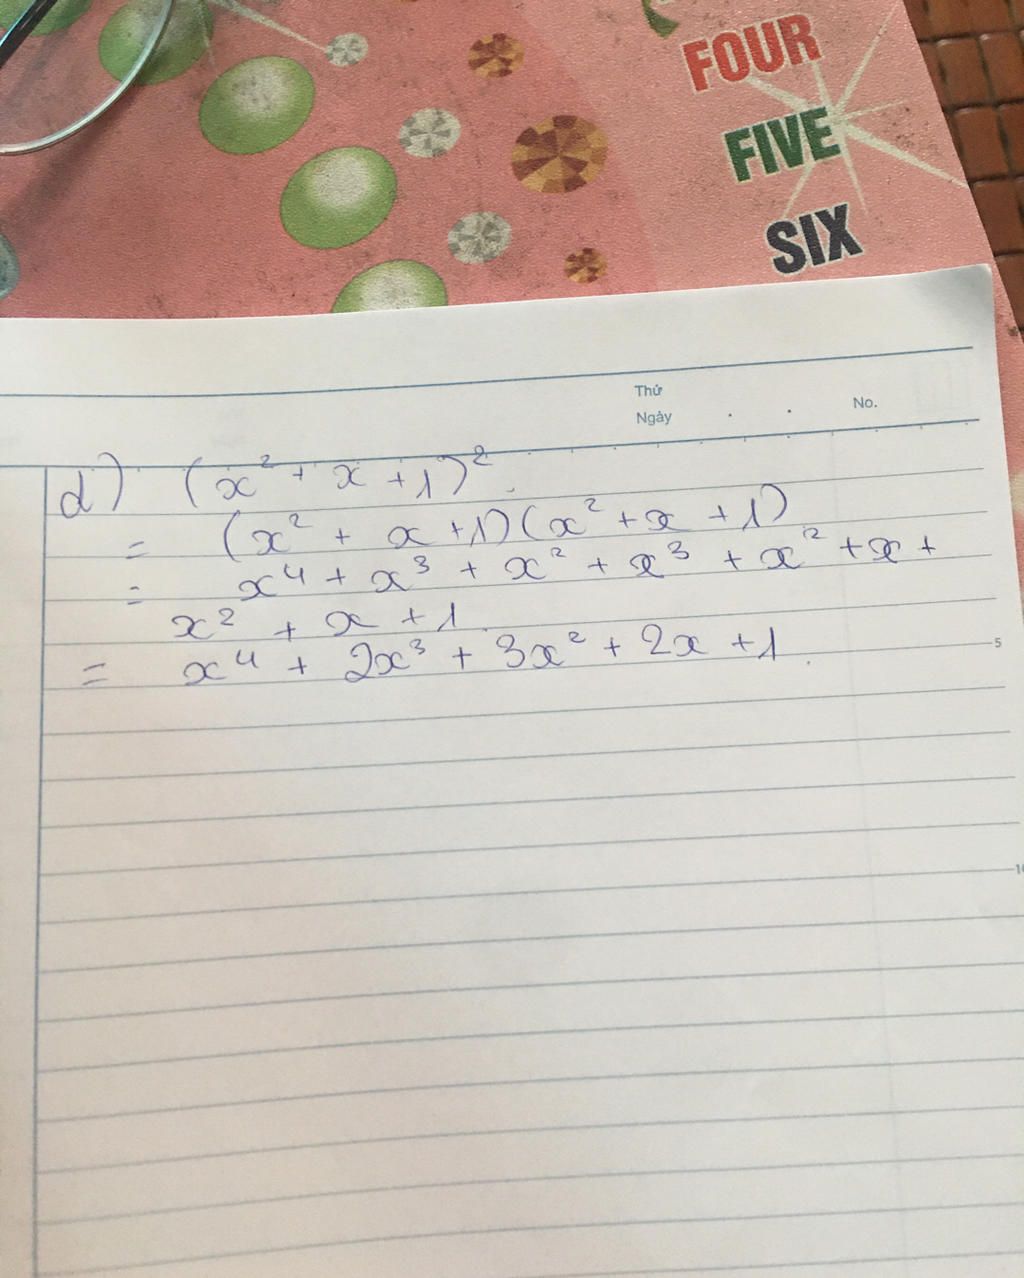 FOUR
FIVE
SIX
Thứ
Ngày . . No.
d) (x² + x + 1)².
= (x² + x + 1)(x² + x + 1)
= x⁴ + x³ + x² + x³ + x² + x +
x² + x + 1.
= x⁴ + 2x³ + 3x² + 2x + 1.
5